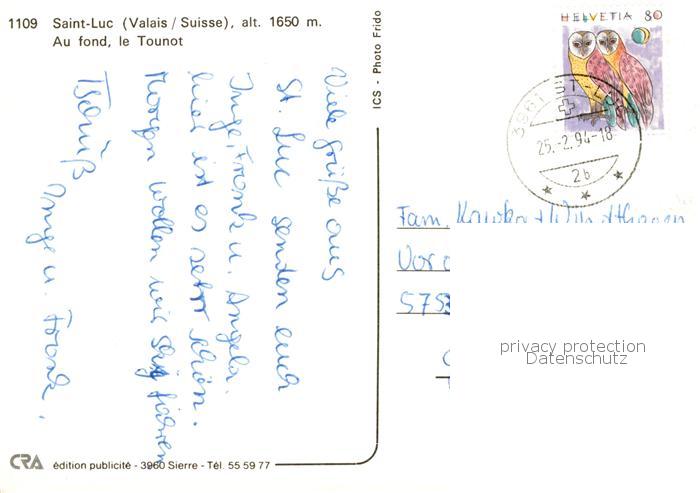 1109 Saint-Luc (Valais / Suisse), alt. 1650 m.
Au fond, le Tounot
Viele Grüße aus
St. Luc senden euch
Inge, Frank u. Angela.
hier ist es sehr schön.
Morgen wollen wir Ski fahren
Tschüß
Inge u. Frank.
ICS - Photo Frido
HELVETIA 80
3961 ST-LUC
25.-2.94-18
2b
Fam.
Vor
575
privacy protection
Datenschutz
CRA édition publicité - 3960 Sierre - Tél. 55 59 77